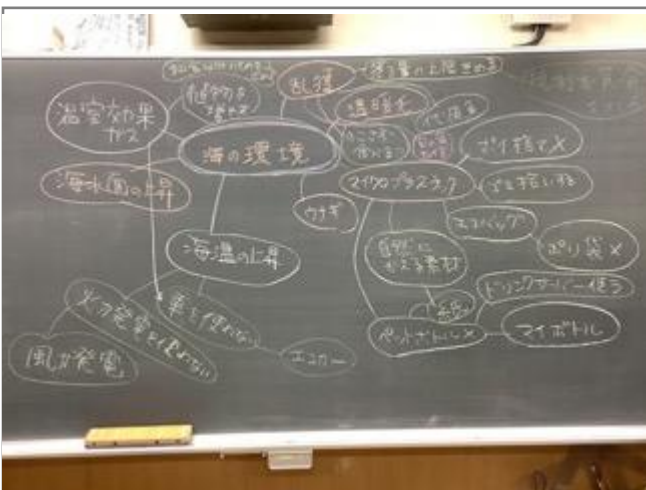 乱獲
温室効果
ガス
植物を
増やす
温暖化
海の環境
ポイ捨て×
海水面の上昇
マイクロプラスチック
ゴミ拾い
ウナギ
エコバッグ
ポリ袋×
海温の上昇
自然に
素材
紙
ドリンクサーバー使う
火力発電を使わない
車を使わない
ペットボトル×
マイボトル
風力発電
エコカー